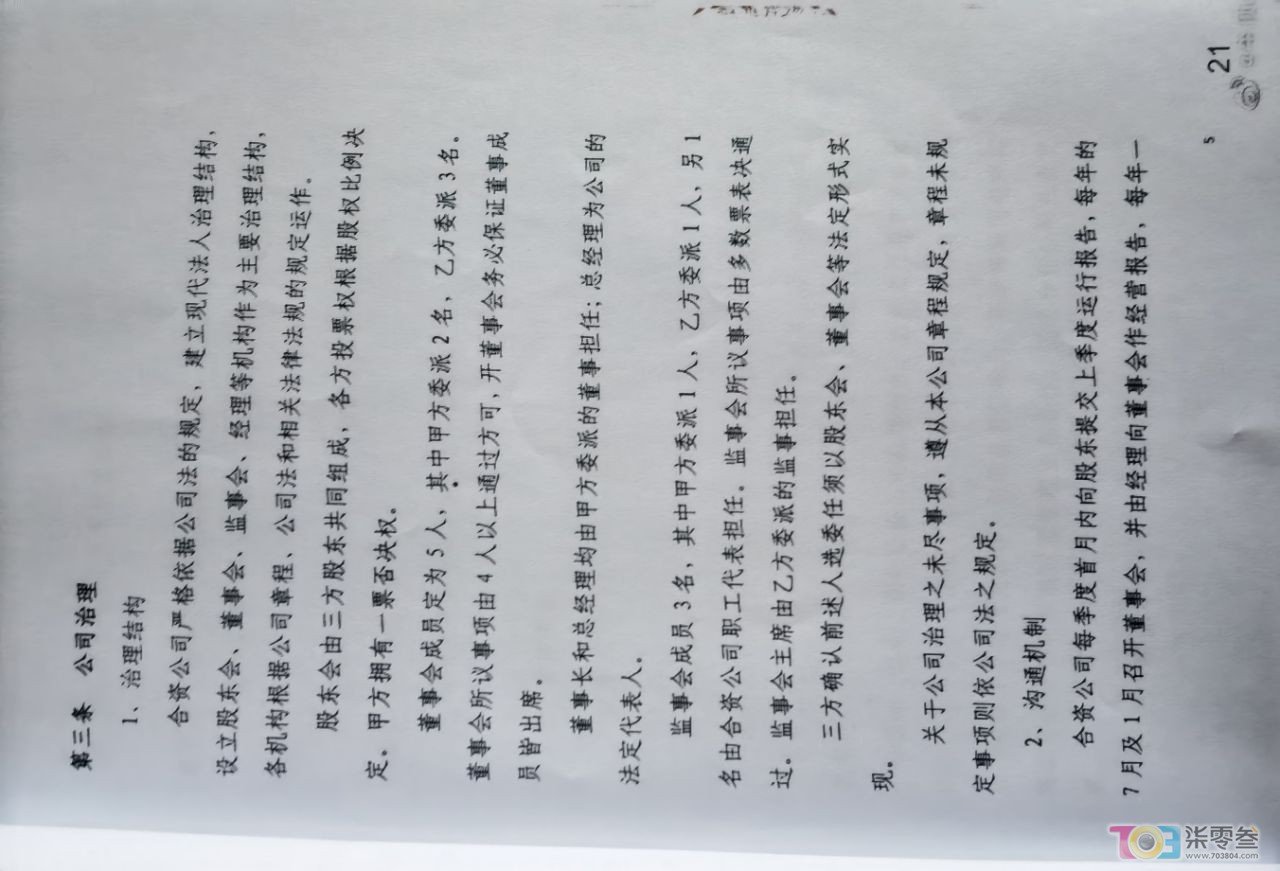 第三条 公司治理
1、治理结构
合资公司严格依据公司法的规定，建立现代法人治理结构，
设立股东会、董事会、监事会、经理等机构作为主要治理结构，
各机构根据公司章程、公司法和相关法律法规的规定运作。
股东会由三方股东共同组成，各方投票权根据股权比例决
定。甲方拥有一票否决权。
董事会成员定为5人，其中甲方委派2名，乙方委派3名。
董事会所议事项由4人以上通过方可，开董事会务必保证董事成
员皆出席。
董事长和总经理均由甲方委派的董事担任；总经理为公司的
法定代表人。
监事会成员3名，其中甲方委派1人，乙方委派1人，另1
名由合资公司职工代表担任。监事会所议事项由多数票表决通
过。监事会主席由乙方委派的监事担任。
三方确认前述人选委任须以股东会、董事会等法定形式实
现。
关于公司治理之未尽事项，遵从本公司章程规定，章程未规
定事项则依公司法之规定。
2、沟通机制
合资公司每季度首月内向股东提交上季度运行报告，每年的
7月及1月召开董事会，并由经理向董事会作经营报告，每年一
5
21
703
柒零叁
www.703804.com